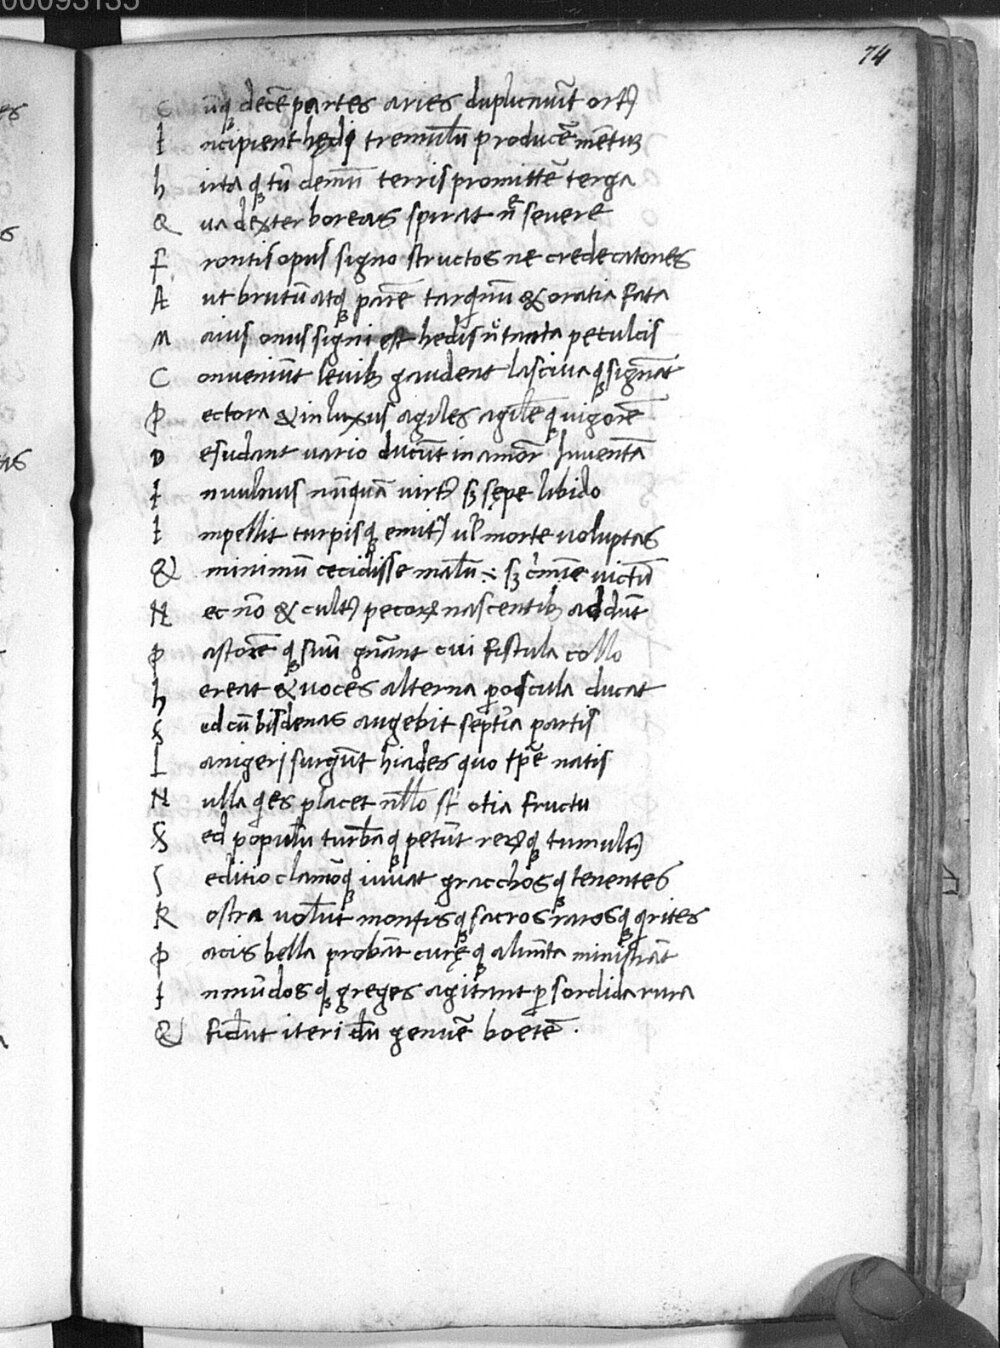 74
C ūq̧ decē partes aries duplicauit̄ ort9
I ncipient hędiq; tremulū producē mentum
h irtaq; tū demū terris promittē terga
Q ua dexter boreas spirat nē seuere
F rontis opus signo structos ne crede catones
A ut brutū atq; parē tarqnū & oratia fata
M aius onus signi est hedis nͦ tanta petulcis
C onueniūt leuib; gaudent lasciuaq; signāt
P ectora & in luxus agiles agilēq; uigorē
D esudant uario ducūt in amor̄ Iuuentā
I nuulnus nūquā uirt9 sȝ sępe libido
I mpellit turpisq; emit̄ ul morte uoluptas
& minimū cecidisse malū ÷ sȝ crimīe uictū
N ec nͦ & cult9 pecorꝝ nascentib; addūt
p astorēq; suū gnāant cui fistula collo
h ereat & uoces alterna ꝑ oscula ducat
S ed cū bis denas augebit septīa partis
L anigeri surgūt hiades quo tꝑē natis
N ulla qes placet nllo st̄ otia fructu
S ed populū turbāq; petūt rerꝝq; tumult9
S editio clamorq; iuuat gracchosq; tenentes
R ostra uolūt montisq; sacros rarosq; qrites
P acis bella probāt curęq; alimīta ministrāt
I nmūdosq; greges agitant ꝑ sordida rura
& fidūt iteri dū genuē boetē .